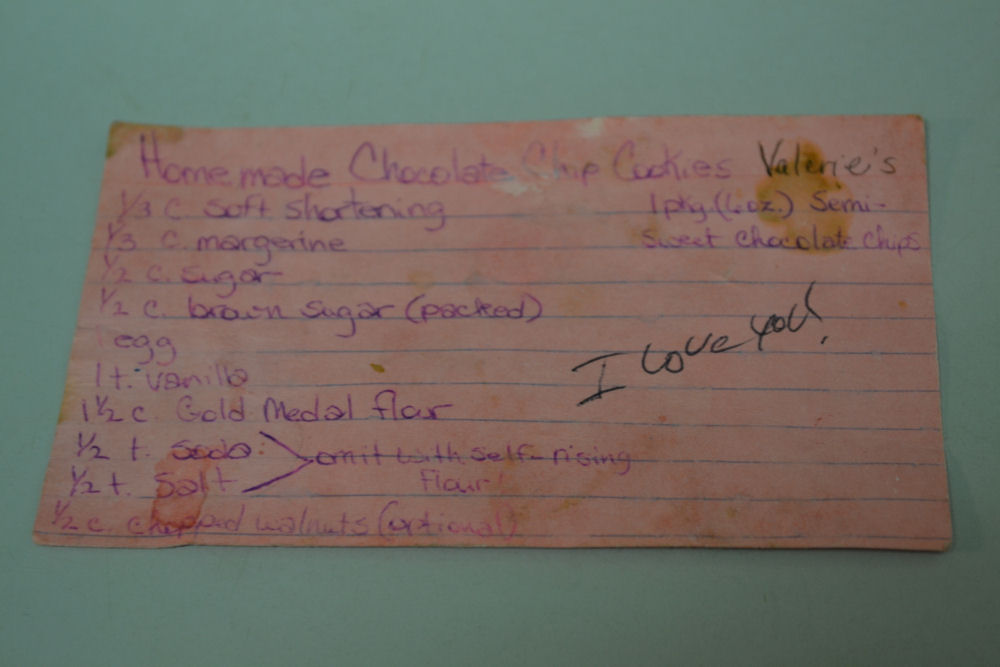 Homemade Chocolate Chip Cookies Valerie's
1/3 c. soft shortening
1/3 c. margerine
1/2 c. sugar
1/2 c. brown sugar (packed)
1 egg
1 t. vanilla
1 1/2 c. Gold Medal flour
1/2 t. soda
1/2 t. salt
omit with self-rising
flour
1/2 c. chopped walnuts (optional)
1 pkg. (6 oz.) Semi-
sweet chocolate chips
I love you!